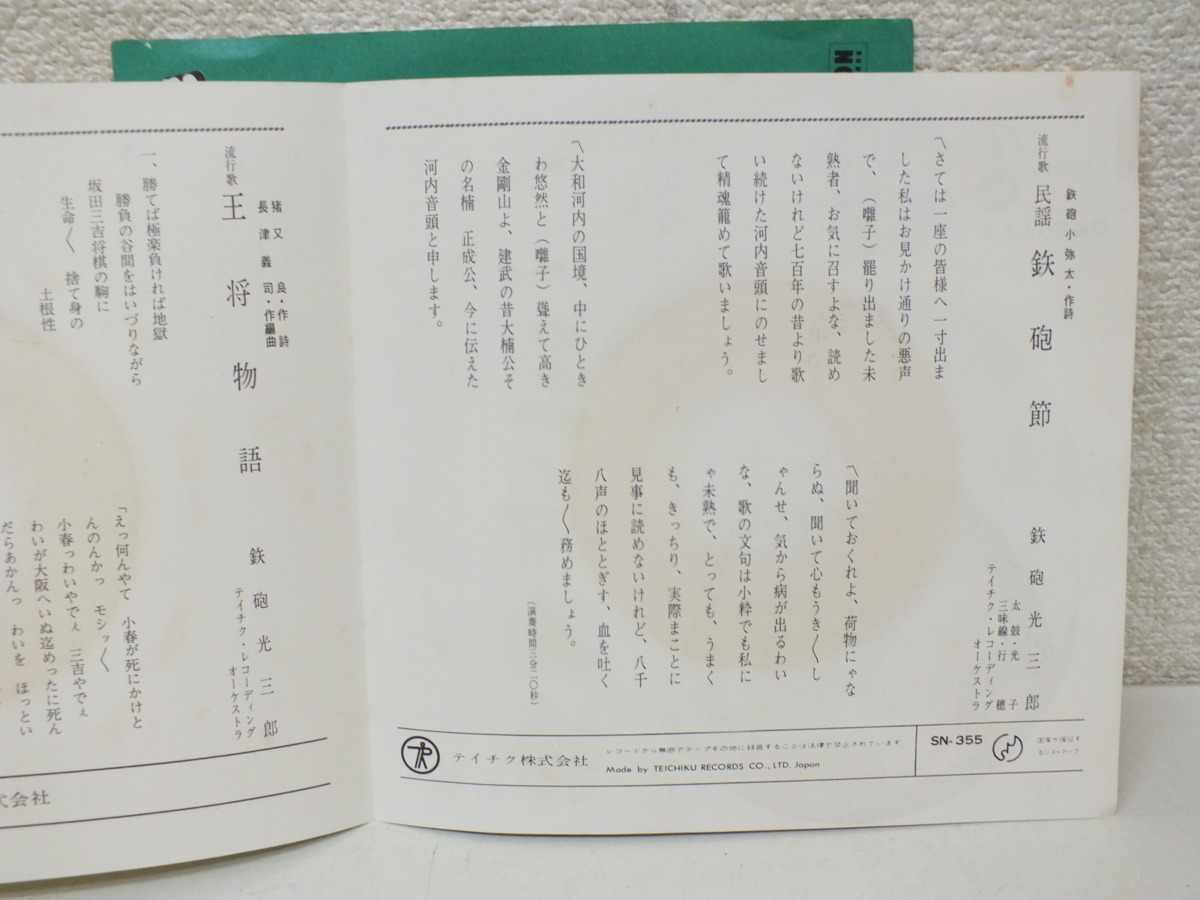 鉄砲小弥太・作詩
流行歌 民謡 鉄砲節
鉄砲光三郎
太鼓・光子
三味線・行穂
テイチク・レコーディング
オーケストラ
〽さては一座の皆様へ一寸出ま
した私はお見かけ通りの悪声
で、(囃子)罷り出ました未
熟者、お気に召すよな、読め
ないけれど七百年の昔より歌
い続けた河内音頭にのせまし
て精魂籠めて歌いましょう。
〽大和河内の国境、中にひとき
わ悠然と(囃子)聳えて高き
金剛山よ、建武の昔大楠公そ
の名楠 正成公、今に伝えた
河内音頭と申します。
〽聞いておくれよ、荷物にゃな
らぬ、聞いて心もうき〱し
ゃんせ、気から病が出るわい
な、歌の文句は小粋でも私に
ゃ未熟で、とっても、うまく
も、きっちり、実際まことに
見事に読めないけれど、八千
八声のほととぎす、血を吐く
迄も〱務めましょう。
(演奏時間三分二〇秒)
テイチク株式会社
レコードから無断でテープその他に録音することは法律で禁止されています
Made by TEICHIKU RECORDS CO., LTD. Japan
SN-355
国家が保証す
るジス・マーク
猪又良・作詩
長津義司・作編曲
流行歌 王将物語
鉄砲光三郎
テイチク・レコーディング
オーケストラ
一、勝てば極楽負ければ地獄
勝負の谷間をはいづりながら
坂田三吉将棋の駒に
生命〱 捨て身の
土根性
「えっ何んやて 小春が死にかけと
んのんかっ モシッ〱
小春っわいやでぇ 三吉やでぇ
わいが大阪へいぬ迄めったに死ん
だらあかんっ わいを ほっとい
式会社